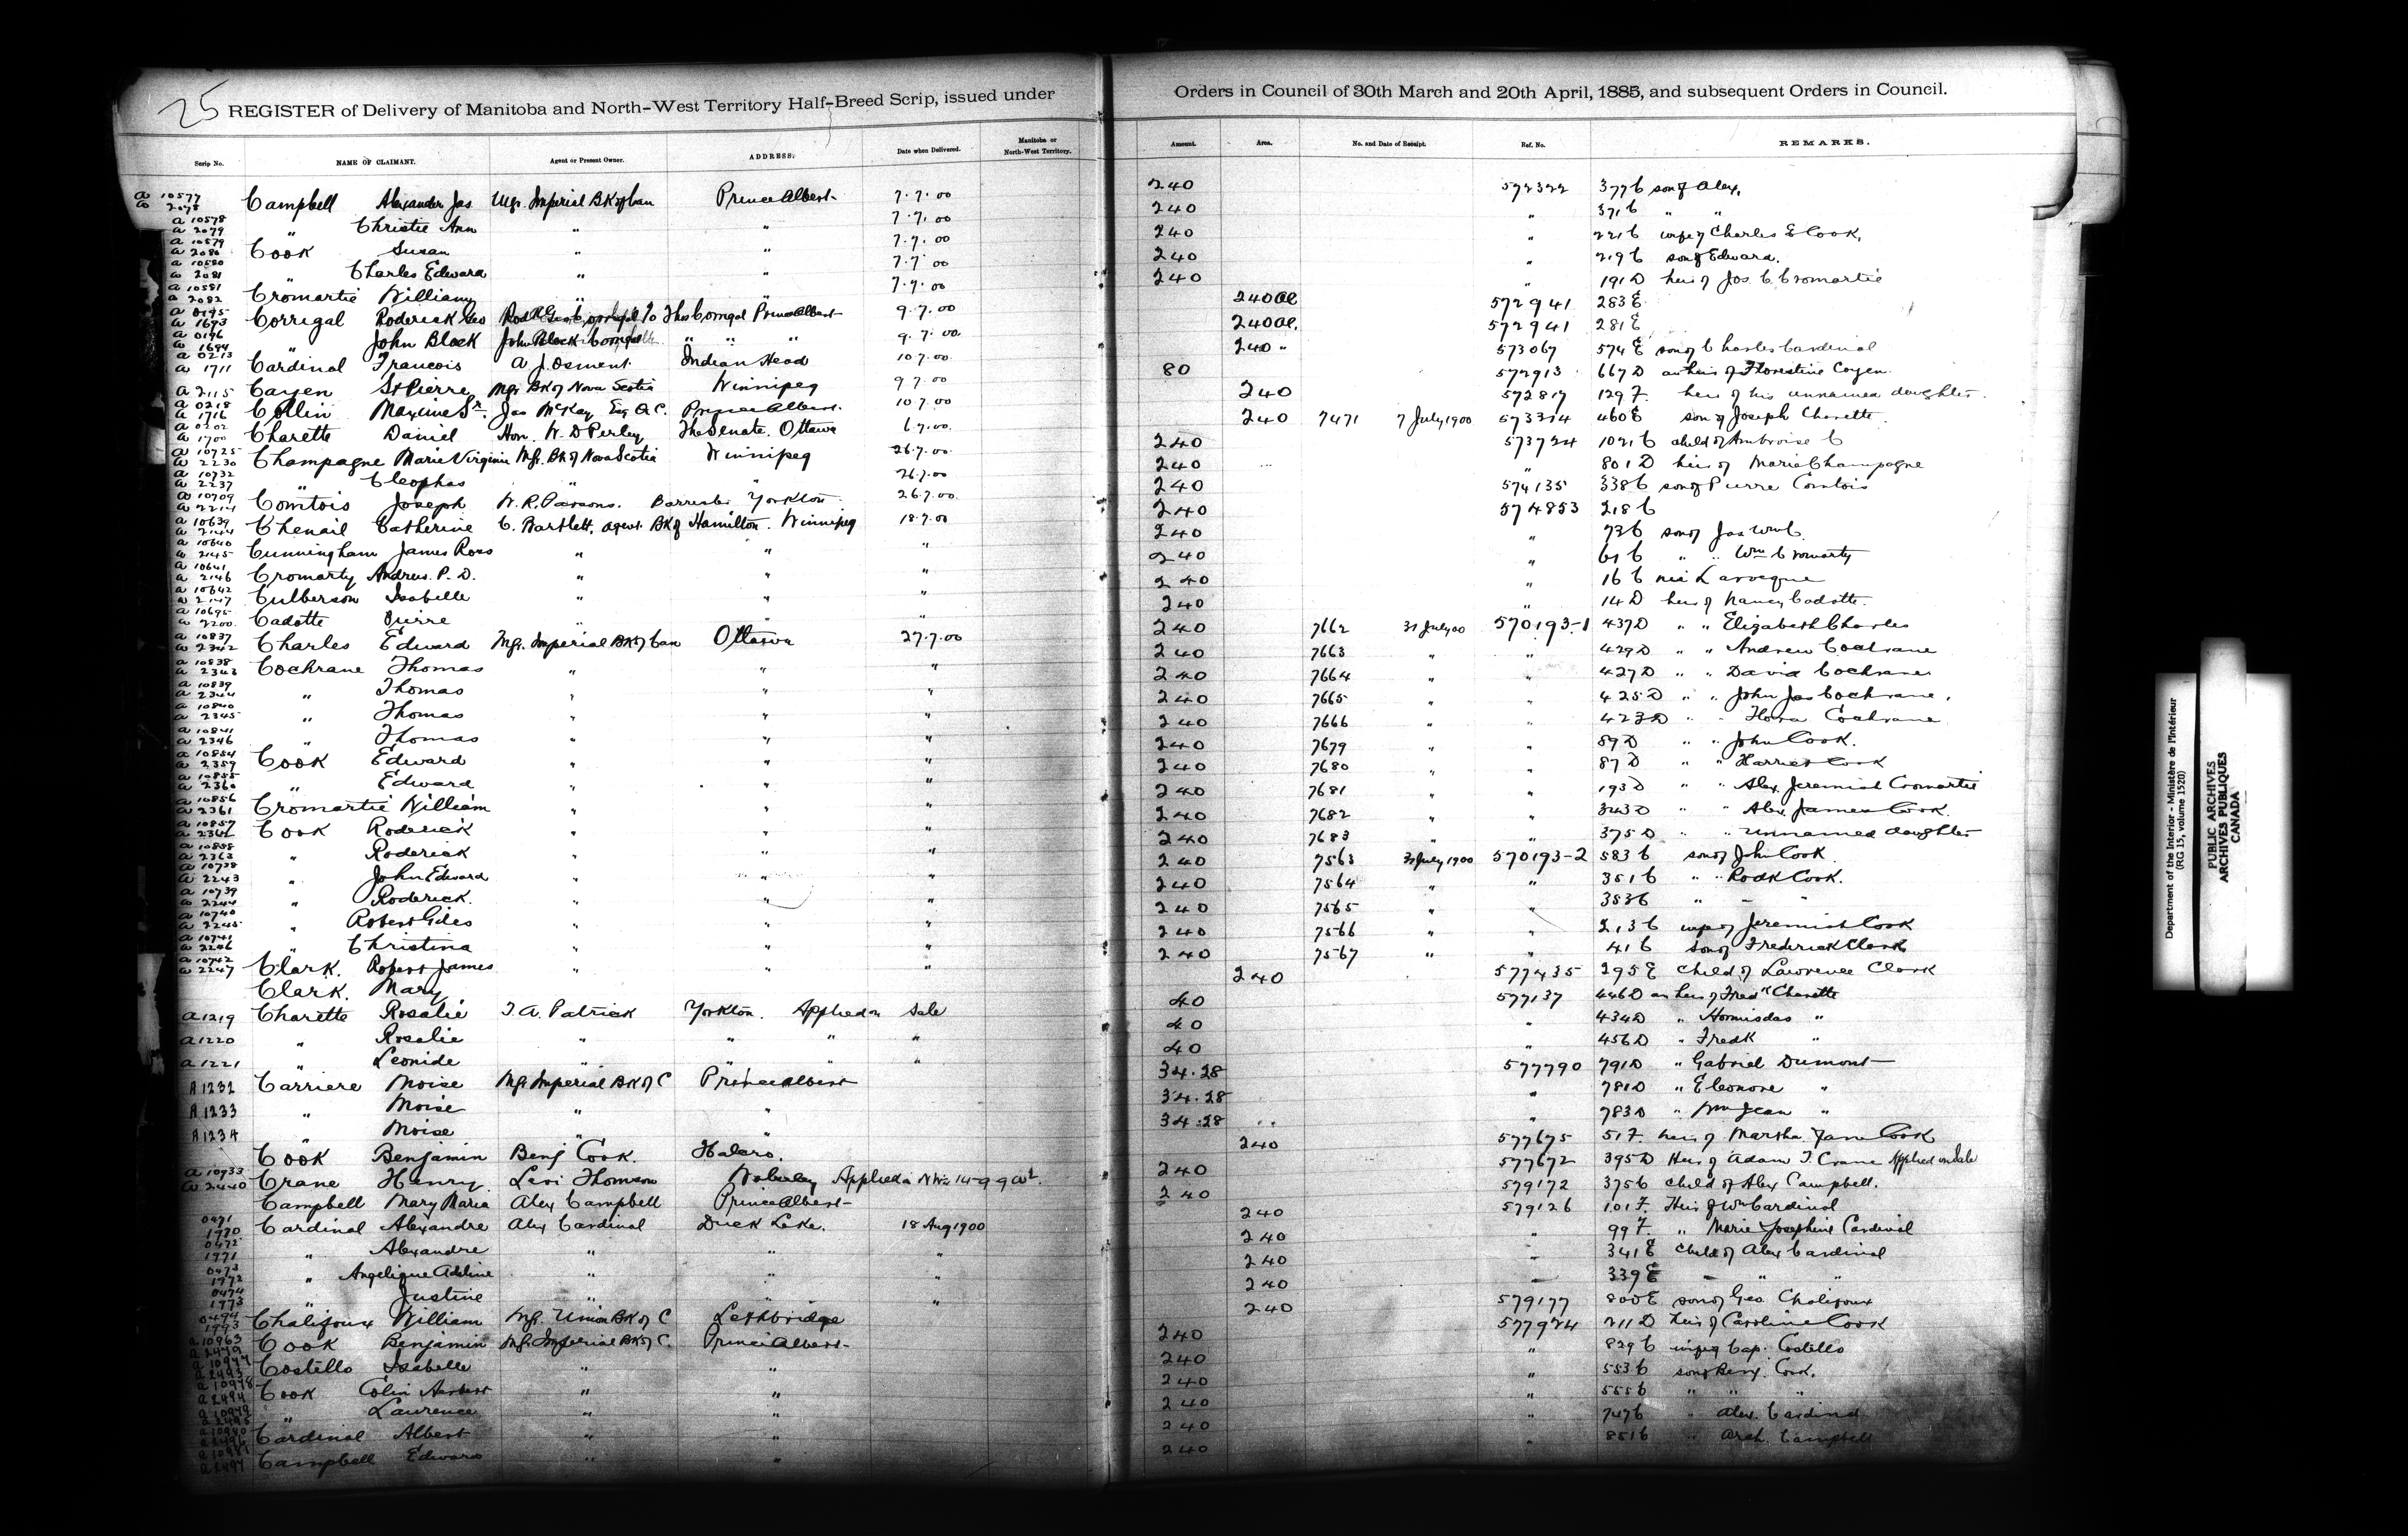 25 REGISTER of Delivery of Manitoba and North-West Territory Half-Breed Scrip, issued under Orders in Council of 30th March and 20th April, 1885, and subsequent Orders in Council.
Scrip No. NAME OF CLAIMANT. Agent or Present Owner. ADDRESS. Date when Delivered. Manitoba or North-West Territory. Amount. Area. No. and Date of Receipt. Ref. No. REMARKS.
a 10577 a 2078 Campbell Alexander Jas Mgr. Imperial Bk of Can Prince Albert 7.7.00 240 572322 377 C son of Alex.
a 10578 a 2079 " Christie Ann " " 7.7.00 240 " 371 C " "
a 10579 a 2080 Cook Susan " " 7.7.00 240 " 221 C wife of Charles E Cook.
a 10580 a 2081 " Charles Edward " " 7.7.00 240 " 219 C son of Edward.
a 10581 a 2082 Cromartie William " " 7.7.00 240 " 191 D heir of Jos. C Cromartie
a 0195 a 1693 Corrigal Roderick Geo Thos Corrigal Prince Albert 9.7.00 240 572941 283 E
a 0196 a 1694 " John Block " " " 9.7.00 240 572941 281 E
a 0213 a 1711 Cardinal Francois A. J. Osment Indian Head 10.7.00 240 " 573067 574 E son of Charles Cardinal
a 2115 Cayen St Pierre Mgr Bk of Nova Scotia Winnipeg 9.7.00 80 572913 667 D as heir of Florestine Cayen
a 0218 a 1716 Collin Maxime Sr. Jas McKay Esq Q.C. Prince Albert. 10.7.00 240 572817 129 F. heir of his unnamed daughter
a 0202 a 1700 Charette Daniel Hon. W. D Perley The Senate. Ottawa 6.7.00 240 7471 7 July 1900 573314 460 E son of Joseph Charette
a 10725 a 2230 Champagne Marie Virginie Mgr. Bk of Nova Scotia Winnipeg 26.7.00 240 573724 1021 C child of Ambroise C
a 10732 a 2237 " Cleophas " " 26.7.00 240 " 801 D heir of Marie Champagne
a 10709 a 2214 Comtois Joseph W. R. Parsons. Barrister Yorkton 26.7.00 240 574135 338 C son of Pierre Comtois
a 10639 a 2144 Chenail Catherine C. Bartlett, agent. Bk of Hamilton. Winnipeg 18.7.00 240 574853 218 C
a 10640 a 2145 Cunningham James Ross " " " 240 " 73 C son of Jas Wm C.
a 10641 a 2146 Cromarty Andrew. P. D. " " " 240 " 61 C " " Wm Cromarty
a 10642 a 2147 Culberson Isabelle " " " 240 " 16 C née Larocque
a 10695 a 2200 Cadotte Pierre " " " 240 " 14 D heir of Nancy Cadotte.
a 10837 a 2342 Charles Edward Mgr. Imperial Bk of Can Ottawa 27.7.00 240 7662 31 July 00 570193-1 437 D " " Elizabeth Charles
a 10838 a 2343 Cochrane Thomas " " " 240 7663 " " 429 D " " Andrew Cochrane
a 10839 a 2344 " Thomas " " " 240 7664 " " 427 D " " David Cochrane
a 10840 a 2345 " Thomas " " " 240 7665 " " 425 D " " John Jas Cochrane.
a 10841 a 2346 " Thomas " " " 240 7666 " " 423 D " " Flora Cochrane
a 10854 a 2359 Cook Edward " " " 240 7679 " " 89 D " " John Cook.
a 10855 a 2360 " Edward " " " 240 7680 " " 87 D " " Harriet Cook
a 10856 a 2361 Cromartie William " " " 240 7681 " " 193 D " " Alex. Jeremiah Cromartie
a 10857 a 2362 Cook Roderick " " " 240 7682 " " 343 D " " Alex James Cook.
a 10858 a 2363 " Roderick " " " 240 7683 " " 375 D " " Unnamed daughter
a 10738 a 2243 " John Edward " " " 240 7563 31 July 1900 570193-2 583 C son of John Cook.
a 10739 a 2244 " Roderick. " " " 240 7564 " " 351 C " " Rodk Cook.
a 10740 a 2245 " Robert Giles " " " 240 7565 " " 353 C " " "
a 10741 a 2246 " Christina " " " 240 7566 " " 213 C wife of Jeremiah Cook
a 10742 a 2247 Clark. Robert James " " " 240 7567 " " 41 C son of Frederick Clark
Clark. Mary 240 577435 295 E child of Lawrence Clark
a 1219 Charette Rosalie T. A. Patrick Yorkton. Applied on Sale 40 577137 446 D as heir of Fredk Charette
a 1220 " Rosalie " " " " 40 " 434 D " Hormisdas "
a 1221 " Leonide " " " " 40 " 456 D " Fredk "
A 1232 Carriere Moise Mgr Imperial Bk of C Prince Albert 34.28 577790 791 D " Gabriel Dumont
A 1233 " Moise " " 34.28 " 781 D " Eleonore "
A 1234 " Moise " " 34.28 " 783 D " Wm Jean "
Cook Benjamin Benj Cook. Halcro. 240 577675 51 F. heir of Marsha Jane Cook
a 10933 a 2440 Crane Henry Levi Thomson Wolseley Applied on 240 577672 395 D Heir of Adam T. Crane Applied on Sale
Campbell Mary Maria Alex Campbell Prince Albert 240 579172 375 C child of Alex Campbell.
0471 1970 Cardinal Alexandre Alex Cardinal Duck Lake. 18 Aug 1900 240 579126 101 F. Heir of Wm Cardinal
0472 1971 " Alexandre " " " 240 " 99 F. " Marie Josephine Cardinal
0473 1972 " Angelique Adeline " " " 240 " 341 E child of Alex Cardinal
0474 1973 " Justine " " " 240 " 339 E " " "
1993 Chalifoux William Mgr. Union Bk of C Lethbridge 240 579177 800 E son of Geo. Chalifoux
a 10963 Cook Benjamin Mgr. Imperial Bk of C. Prince Albert 240 577924 211 D heir of Caroline Cook
Costello Isabelle " " 240 " 829 C wife of Cap. Costello
a 10978 a 2494 Cook Colin Herbert " " 240 " 553 C son of Benj. Cook.
a 10979 a 2495 " Laurence " " 240 " 555 C " " "
Cardinal Albert " " 240 " 747 C " Alex. Cardinal
a 2497 Campbell Edward " " 240 " 851 C " Arch. Campbell
Department of the Interior - Ministère de l'Intérieur
(RG 15, volume 1520)
PUBLIC ARCHIVES
ARCHIVES PUBLIQUES
CANADA